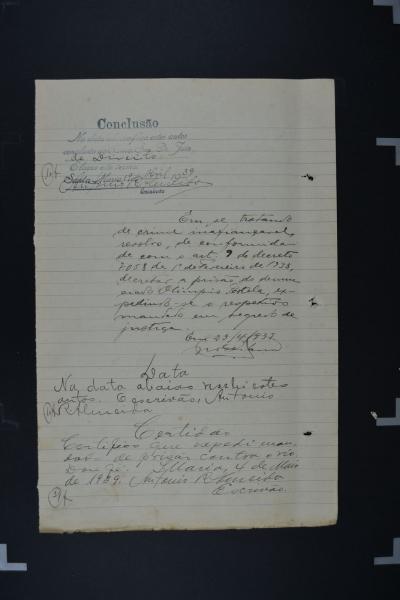 Conclusão
Na data supra faço estes autos
conclusos ao Juiz
de Direito.
Santa Maria, 1939
Antonio R Almeida
Escrivão
Em se tratando
de crime inafiançavel,
resolvo, de conformida-
de com o art. 9 do decreto
de 1º de Fevereiro de 1938,
decretar a prisão do denun-
ciado Olimpio, ex-
pedindo-se o respetivo
mandado em segredo de
justiça.
Em 23/4/937
Data
Na data abaixo recebi estes
autos. O escrivão, Antonio
R Almeida
Certidão
Certifico que expedi man-
dado de prisão contra o réo.
Dou fé. S. Maria, 4 de Maio
de 1939. Antonio R Almeida
Escrivão.